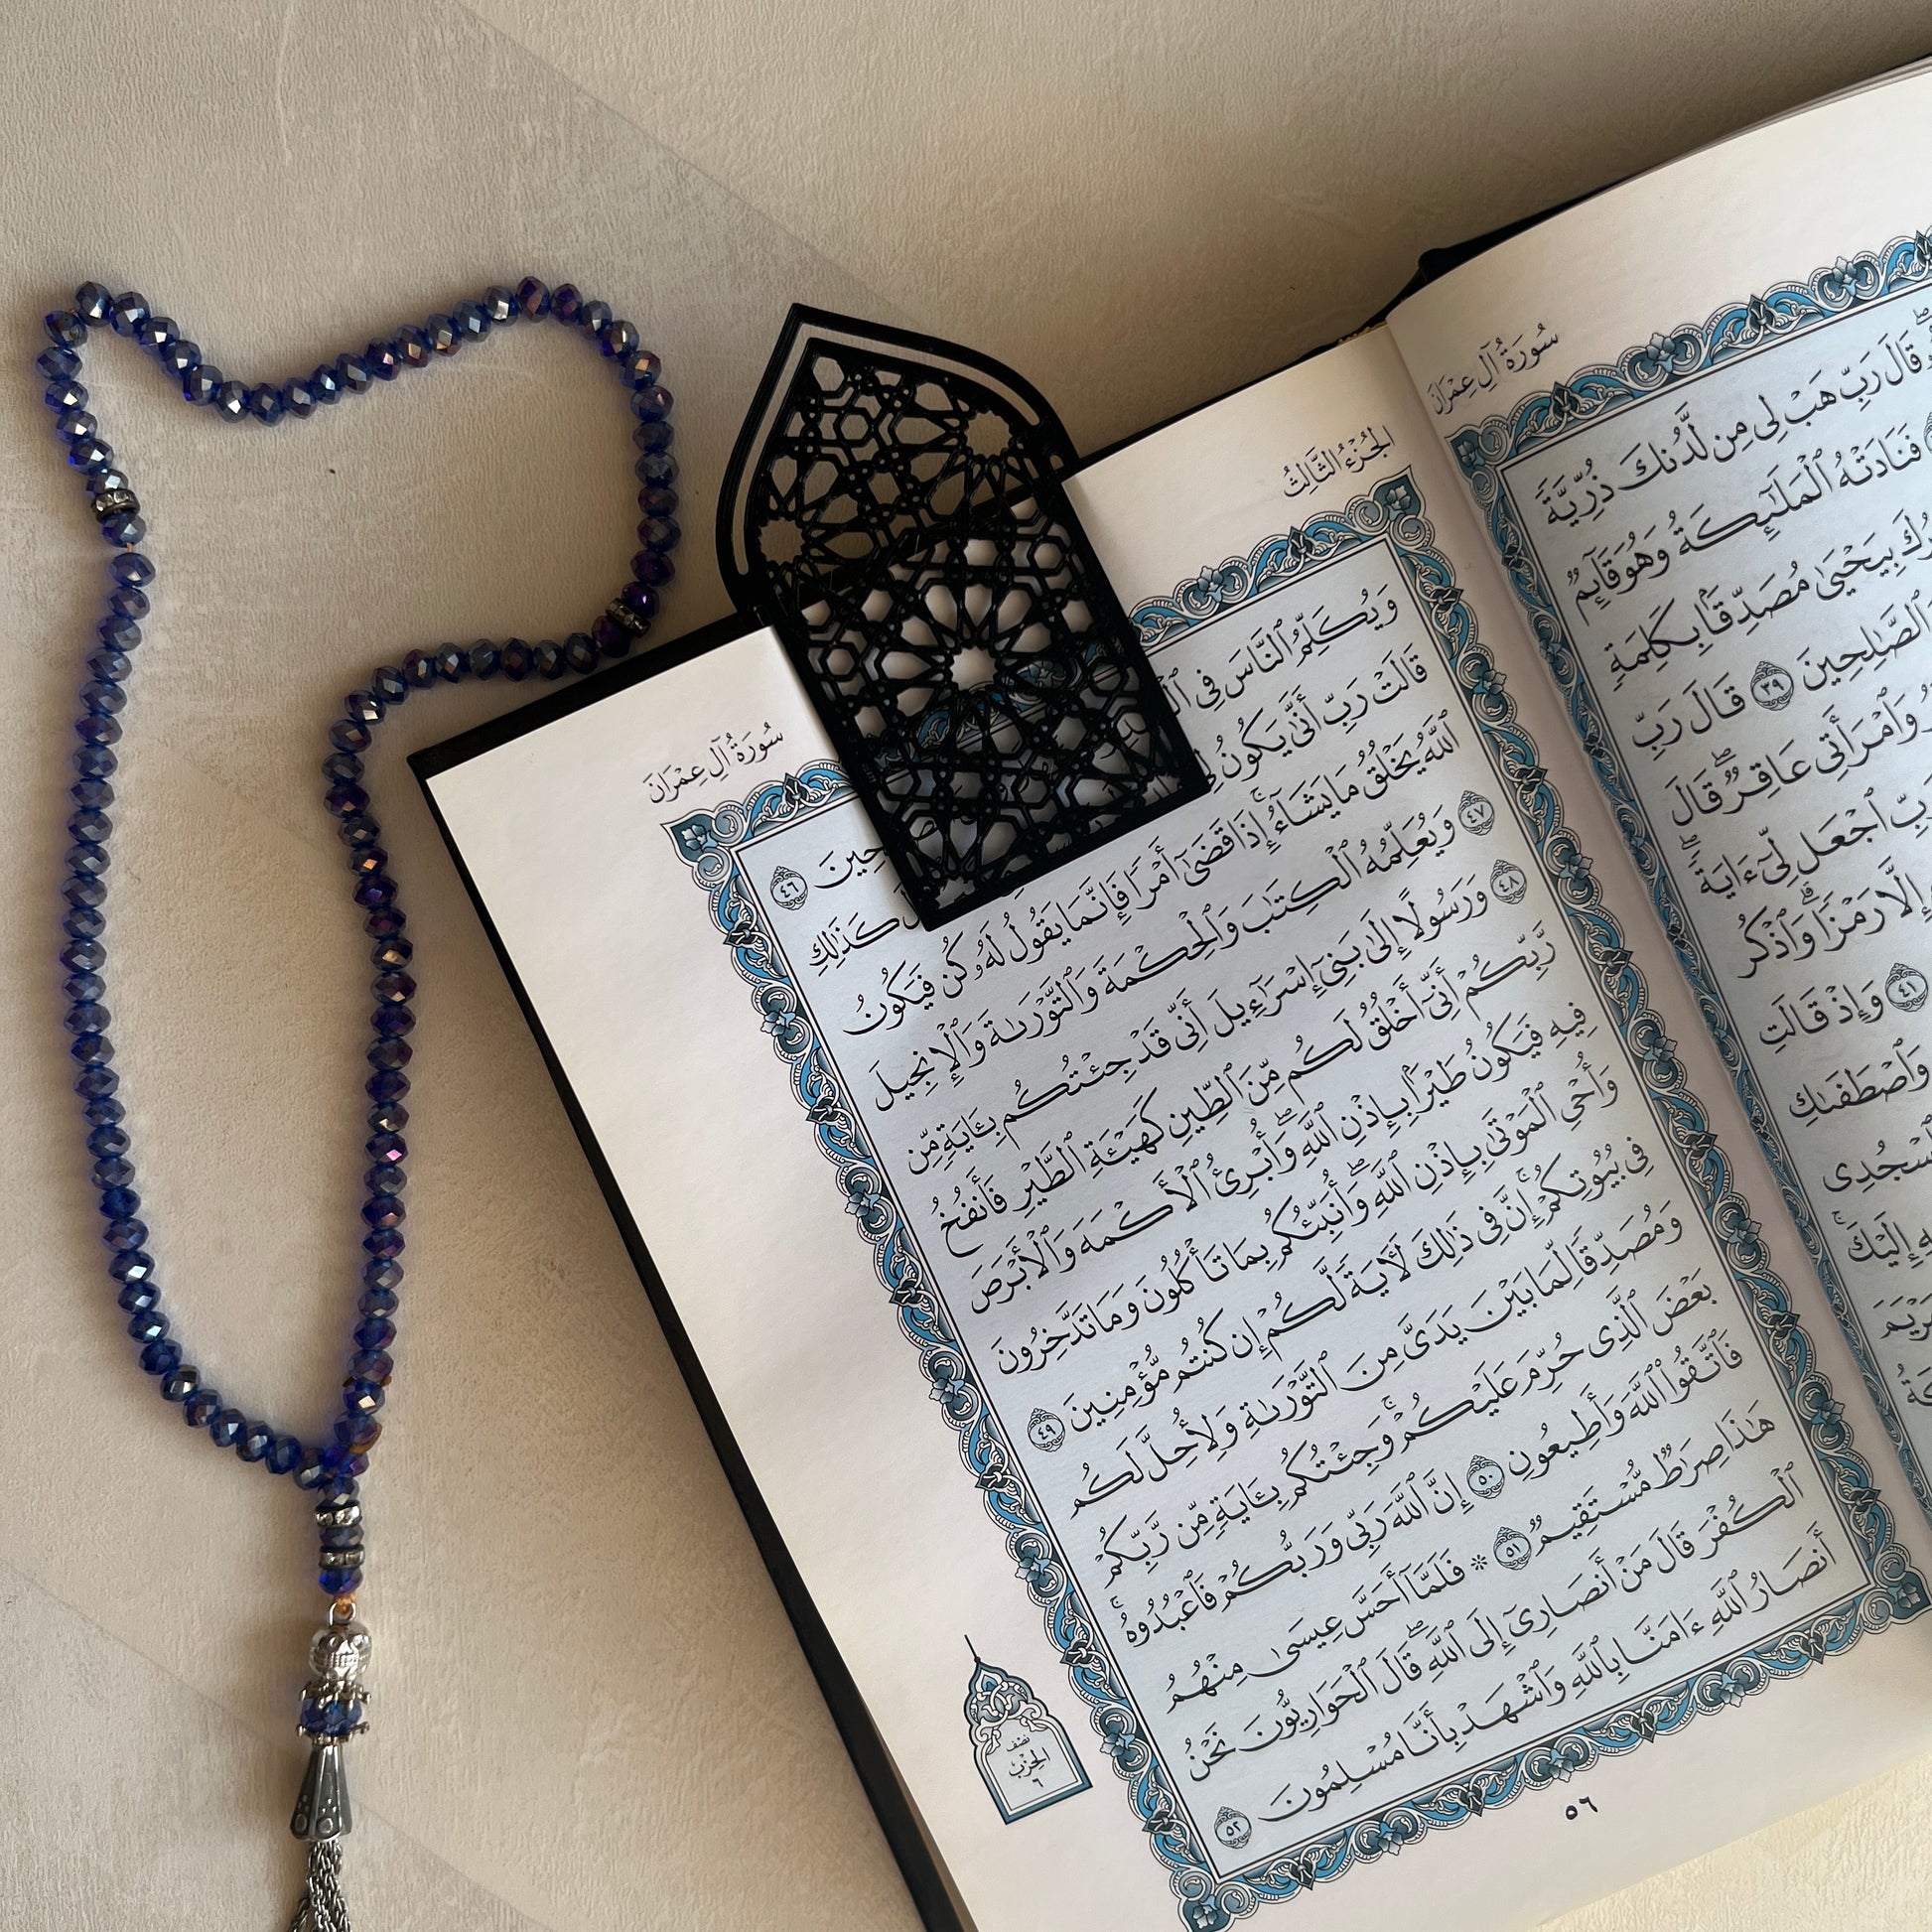 سُورَةُ آلِ عِمْرَانَ
قَالَ رَبِّ هَبْ لِي مِن لَّدُنكَ ذُرِّيَّةً
فَنَادَتْهُ ٱلْمَلَٰٓئِكَةُ وَهُوَ قَآئِمٌ
بِيَحْيَىٰ مُصَدِّقَۢا بِكَلِمَةٍ
ٱلصَّٰلِحِينَ ٣٩ قَالَ رَبِّ
وَٱمْرَأَتِي عَاقِرٌۖ قَالَ
ٱجْعَل لِّيٓ ءَايَةٗۖ
إِلَّا رَمْزٗاۗ وَٱذْكُر
٤١ وَإِذْ قَالَتِ
وَٱصْطَفَىٰكِ
إِلَيْكَۚ
ٱلْجُزْءُ الثَّالِثُ
سُورَةُ آلِ عِمْرَانَ
وَيُكَلِّمُ ٱلنَّاسَ فِي ٤٦
قَالَتْ رَبِّ أَنَّىٰ يَكُونُ كَذَٰلِكِ
ٱللَّهُ يَخْلُقُ مَا يَشَآءُۚ إِذَا قَضَىٰٓ أَمْرٗا فَإِنَّمَا يَقُولُ لَهُۥ كُن فَيَكُونُ
٤٧ وَيُعَلِّمُهُ ٱلْكِتَٰبَ وَٱلْحِكْمَةَ وَٱلتَّوْرَىٰةَ وَٱلْإِنجِيلَ
٤٨ وَرَسُولًا إِلَىٰ بَنِيٓ إِسْرَٰٓءِيلَ أَنِّي قَدْ جِئْتُكُم بِـَٔايَةٖ مِّن
رَّبِّكُمْ أَنِّيٓ أَخْلُقُ لَكُم مِّنَ ٱلطِّينِ كَهَيْـَٔةِ ٱلطَّيْرِ فَأَنفُخُ
فِيهِ فَيَكُونُ طَيْرَۢا بِإِذْنِ ٱللَّهِۖ وَأُبْرِئُ ٱلْأَكْمَهَ وَٱلْأَبْرَصَ
وَأُحْيِ ٱلْمَوْتَىٰ بِإِذْنِ ٱللَّهِۖ وَأُنَبِّئُكُم بِمَا تَأْكُلُونَ وَمَا تَدَّخِرُونَ
فِي بُيُوتِكُمْۚ إِنَّ فِي ذَٰلِكَ لَأٓيَةٗ لَّكُمْ إِن كُنتُم مُّؤْمِنِينَ ٤٩
وَمُصَدِّقٗا لِّمَا بَيْنَ يَدَيَّ مِنَ ٱلتَّوْرَىٰةِ وَلِأُحِلَّ لَكُم
بَعْضَ ٱلَّذِي حُرِّمَ عَلَيْكُمْۚ وَجِئْتُكُم بِـَٔايَةٖ مِّن رَّبِّكُمْ
فَٱتَّقُوا۟ ٱللَّهَ وَأَطِيعُونِ ٥٠ إِنَّ ٱللَّهَ رَبِّي وَرَبُّكُمْ فَٱعْبُدُوهُۚ
هَٰذَا صِرَٰطٞ مُّسْتَقِيمٞ ٥١ ۞ فَلَمَّآ أَحَسَّ عِيسَىٰ مِنْهُمُ
ٱلْكُفْرَ قَالَ مَنْ أَنصَارِيٓ إِلَى ٱللَّهِۖ قَالَ ٱلْحَوَارِيُّونَ نَحْنُ
أَنصَارُ ٱللَّهِ ءَامَنَّا بِٱللَّهِ وَٱشْهَدْ بِأَنَّا مُسْلِمُونَ ٥٢
نصف
الحزب
٦
٥٦